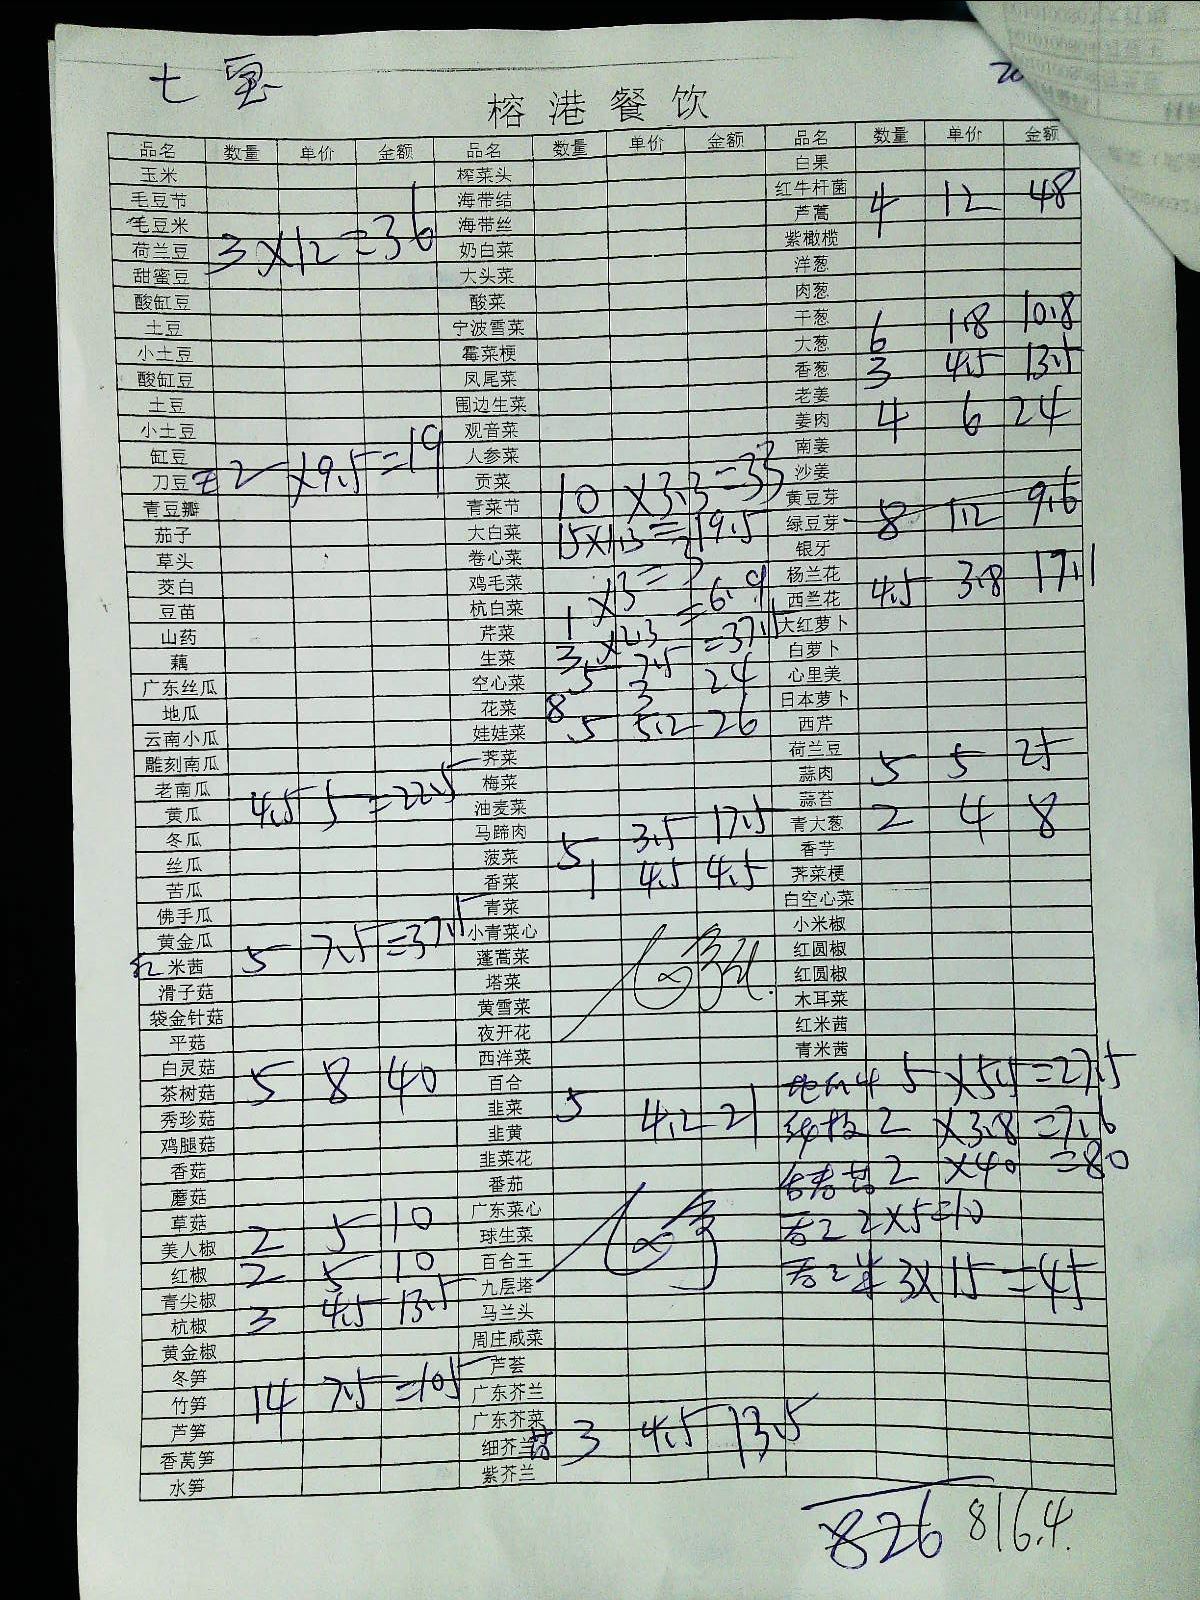 七宝
20
榕港餐饮
品名 数量 单价 金额 品名 数量 单价 金额 品名 数量 单价 金额
玉米 榨菜头 白果
毛豆节 海带结 红牛杆菌
毛豆米 海带丝 芦蒿 4 12 48
荷兰豆 3×12=36 奶白菜 紫橄榄
甜蜜豆 大头菜 洋葱
酸缸豆 酸菜 肉葱
土豆 宁波雪菜 干葱
小土豆 霉菜梗 大葱 6 1.8 10.8
酸缸豆 凤尾菜 香葱 3 4.5 13.5
土豆 围边生菜 老姜
小土豆 观音菜 姜肉 4 6 24
缸豆 人参菜 南姜
刀豆 2×9.5=19 贡菜 沙姜
青豆瓣 青菜节 10×3.3=33 黄豆芽
茄子 大白菜 15×1.3=19.5 绿豆芽 8 1.2 9.6
草头 卷心菜 银牙
茭白 鸡毛菜 杨兰花
豆苗 杭白菜 1×3=3 西兰花 4.5 3.8 17.1
山药 芹菜 3×2.3=6.9 大红萝卜
藕 生菜 5 7.5=37.5 白萝卜
广东丝瓜 空心菜 8 3 24 心里美
地瓜 花菜 5 5.2 26 日本萝卜
云南小瓜 娃娃菜 西芹
雕刻南瓜 荠菜 荷兰豆
老南瓜 梅菜 蒜肉 5 5 25
黄瓜 4.5 5=22.5 油麦菜 蒜苔
冬瓜 马蹄肉 青大葱 2 4 8
丝瓜 菠菜 5 3.5 17.5 香芋
苦瓜 香菜 1 4.5 4.5 荠菜梗
佛手瓜 青菜 白空心菜
黄金瓜 小青菜心 小米椒
红米茜 5 7.5=37.5 蓬蒿菜 红圆椒
滑子菇 塔菜 红圆椒
袋金针菇 黄雪菜 木耳菜
平菇 夜开花 红米茜
白灵菇 西洋菜 青米茜
茶树菇 5 8 40 百合 5×5.5=27.5
秀珍菇 韭菜 5 4.2 21 2×3.8=7.6
鸡腿菇 韭黄 2×40=80
香菇 韭菜花 2×5=10
蘑菇 番茄 3×15=45
草菇 广东菜心
美人椒 2 5 10 球生菜
红椒 2 5 10 百合王
青尖椒 九层塔
杭椒 3 4.5 13.5 马兰头
黄金椒 周庄咸菜
冬笋 芦荟
竹笋 14 7.5=105 广东芥兰
芦笋 广东芥菜
香莴笋 细芥兰 3 4.5 13.5
水笋 紫芥兰
826 816.4